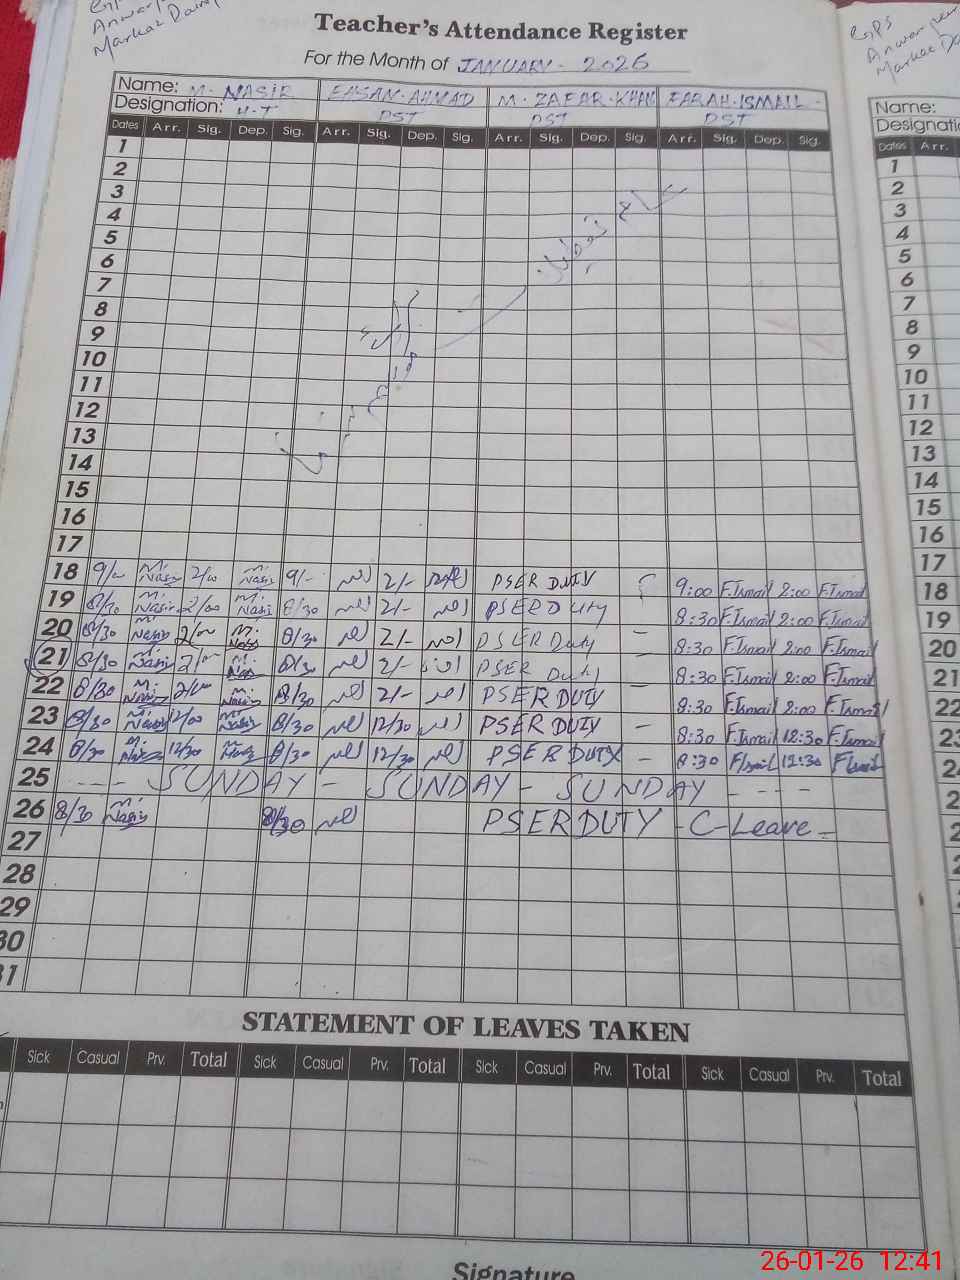 GPS
Anwar
Markaz Dain
Teacher's Attendance Register
For the Month of JANUARY - 2026
Name: M. NASIR EHSAN AHMAD M. ZAFAR KHAN FARAH ISMAIL
Designation: H-T PST PST PST
Dates Arr. Sig. Dep. Sig. Arr. Sig. Dep. Sig. Arr. Sig. Dep. Sig. Arr. Sig. Dep. Sig.
1
2
3
4
5
6
7
8
9
10
11
12
13
14
15
16
17
18 9/- M. Nasir 2/00 M. Nasir 9/- 2/- PSER DUTY 9:00 F.Ismail 2:00 F.Ismail
19 8/30 M. Nasir 2/00 M. Nasir 8/30 2/- PSER Duty 8:30 F.Ismail 2:00 F.Ismail
20 8/30 M. Nasir 2/00 M. Nasir 8/30 2/- PSER Duty - 8:30 F.Ismail 2:00 F.Ismail
21 8/30 M. Nasir 2/00 M. Nasir 8/30 2/- PSER Duty - 8:30 F.Ismail 2:00 F.Ismail
22 8/30 M. Nasir 2/00 M. Nasir 8/30 2/- PSER DUTY - 8:30 F.Ismail 2:00 F.Ismail
23 8/30 M. Nasir 12/00 M. Nasir 8/30 12/30 PSER DUTY - 8:30 F.Ismail 12:30 F.Ismail
24 8/30 M. Nasir 12/30 M. Nasir 8/30 12/30 PSER DUTY - 8:30 F.Ismail 12:30 F.Ismail
25 --- SUNDAY - SUNDAY - SUNDAY ----
26 8/30 M. Nasir 8/30 PSER DUTY - C-Leave -
27
28
29
30
31
STATEMENT OF LEAVES TAKEN
Sick Casual Prv. Total Sick Casual Prv. Total Sick Casual Prv. Total Sick Casual Prv. Total
Signature
GPS
Anwar
Markaz
Name:
Dates Arr.
1
2
3
4
5
6
7
8
9
10
11
12
13
14
15
16
17
18
19
20
21
22
26-01-26 12:41